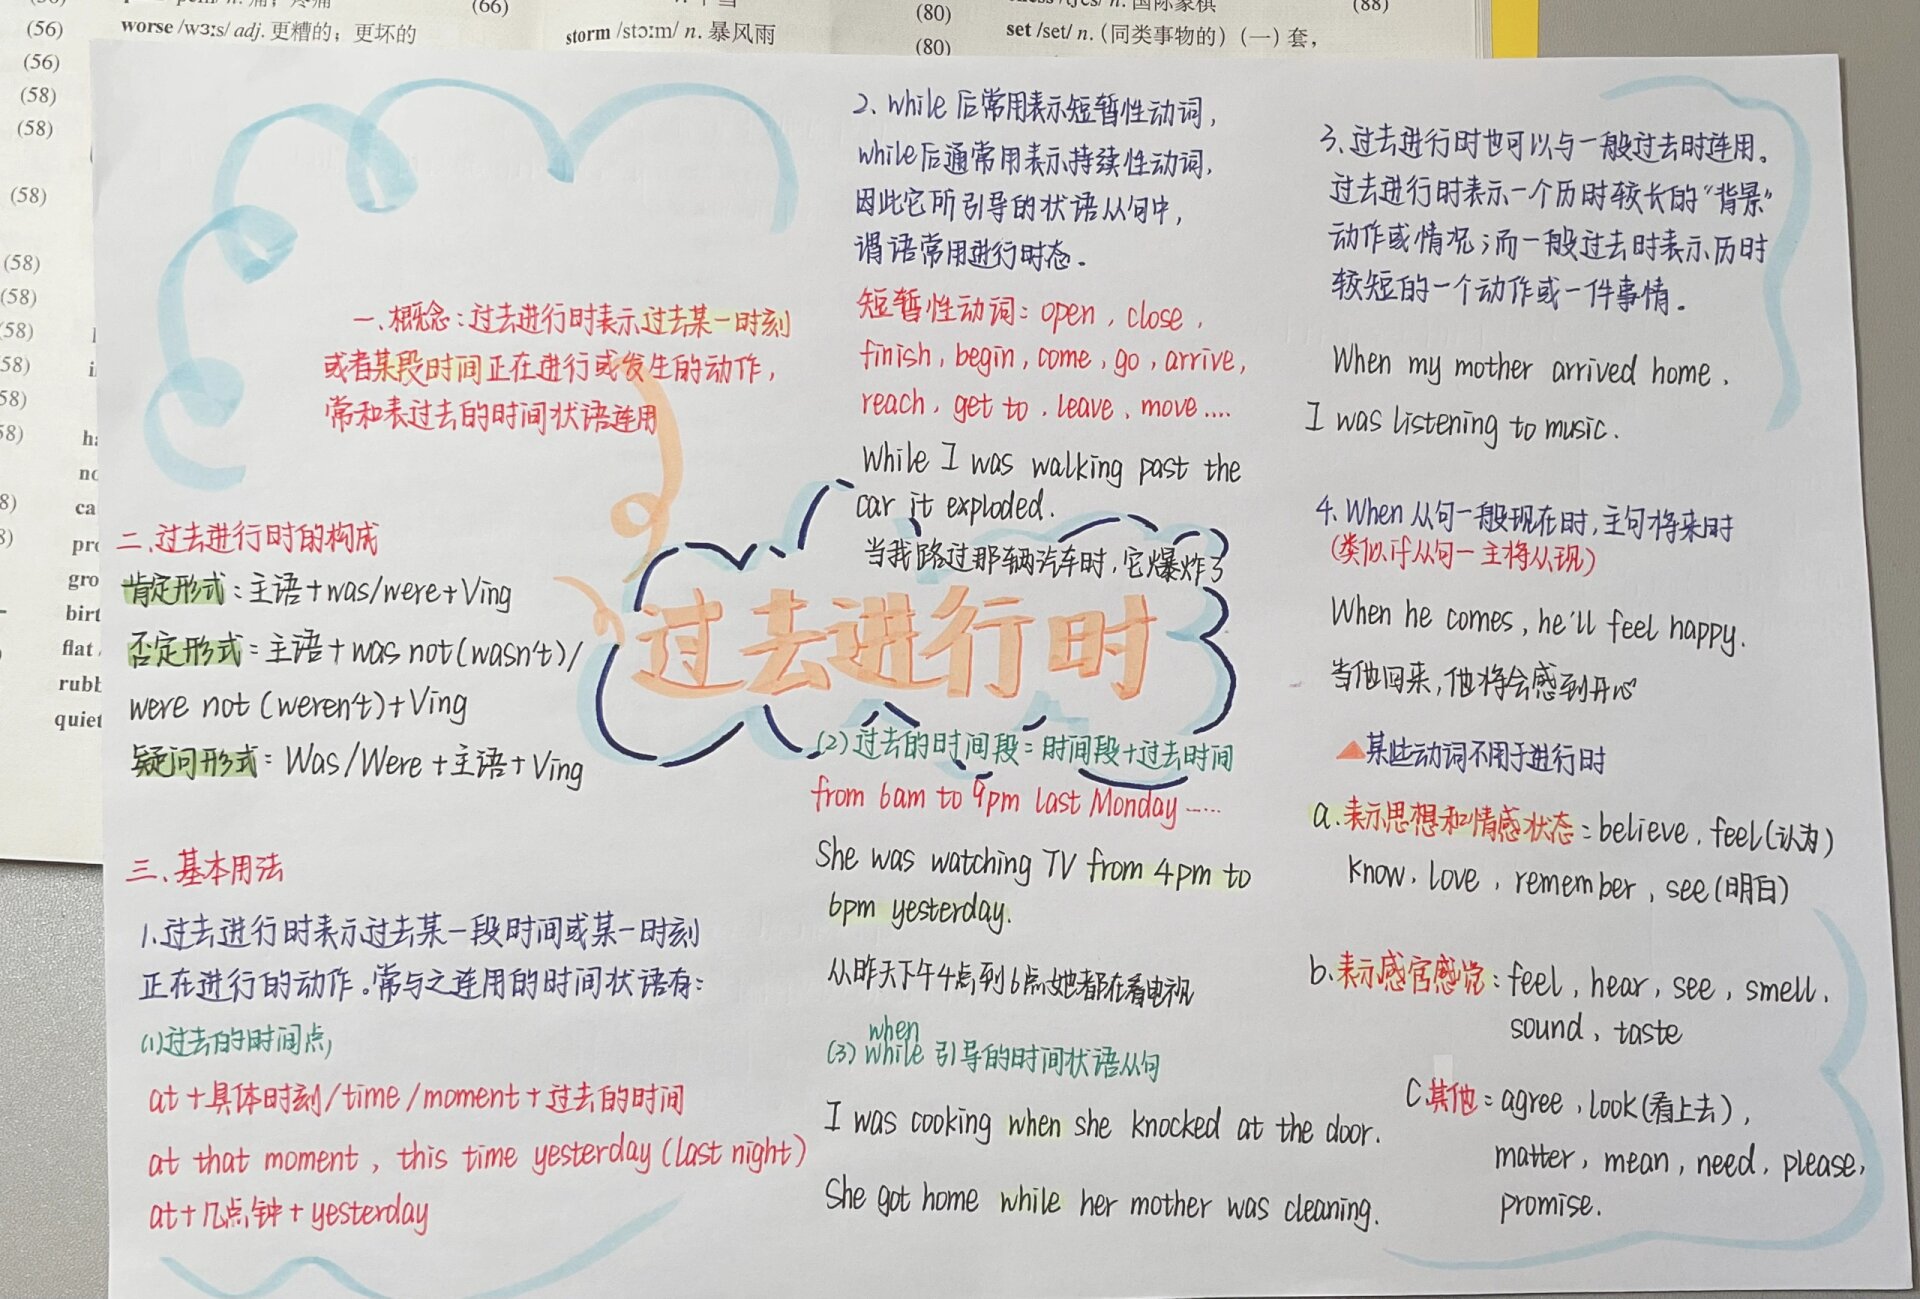 (56)
worse /wɜːs/ adj. 更糟的；更坏的
(66)
storm /stɔːm/ n. 暴风雨
(80)
(80)
n. 国际象棋
set /set/ n. (同类事物的) (一) 套，
(88)
(56)
(58)
(58)
(58)
(58)
(58)
(58)
(58)
58)
58)
8)
ha
no
ca
pro
gro
birt
flat
rubb
quiet
过去进行时
一、概念：过去进行时表示过去某一时刻
或者某段时间正在进行或发生的动作，
常和表过去的时间状语连用
二、过去进行时的构成
肯定形式：主语+was/were+Ving
否定形式：主语+was not(wasn't)/
were not (weren't)+Ving
疑问形式：Was/Were+主语+Ving
三、基本用法
1.过去进行时表示过去某一段时间或某一时刻
正在进行的动作。常与之连用的时间状语有：
(1)过去的时间点，
at+具体时刻/time/moment+过去的时间
at that moment, this time yesterday (last night)
at+几点钟+yesterday
(2)过去的时间段：时间段+过去时间
from 6am to 9pm last Monday……
She was watching TV from 4pm to
6pm yesterday.
从昨天下午4点到6点她都在看电视
when
(3) while 引导的时间状语从句
I was cooking when she knocked at the door.
She got home while her mother was cleaning.
2. while 后常用表示短暂性动词，
while后通常用表示持续性动词，
因此它所引导的状语从句中，
谓语常用进行时态。
短暂性动词：open, close,
finish, begin, come, go, arrive,
reach, get to, leave, move....
While I was walking past the
car it exploded.
当我路过那辆汽车时，它爆炸了
3.过去进行时也可以与一般过去时连用。
过去进行时表示一个历时较长的“背景”
动作或情况；而一般过去时表示历时
较短的一个动作或一件事情。
When my mother arrived home,
I was listening to music.
4. When 从句一般现在时，主句将来时
(类似if从句一主将从现)
When he comes, he'll feel happy.
当他回来，他将会感到开心
某些动词不用于进行时
a.表示思想和情感状态：believe, feel(认为)
know, love, remember, see(明白)
b.表示感官感觉：feel, hear, see, smell,
sound, taste
C.其他：agree, look(看上去),
matter, mean, need, please,
promise.